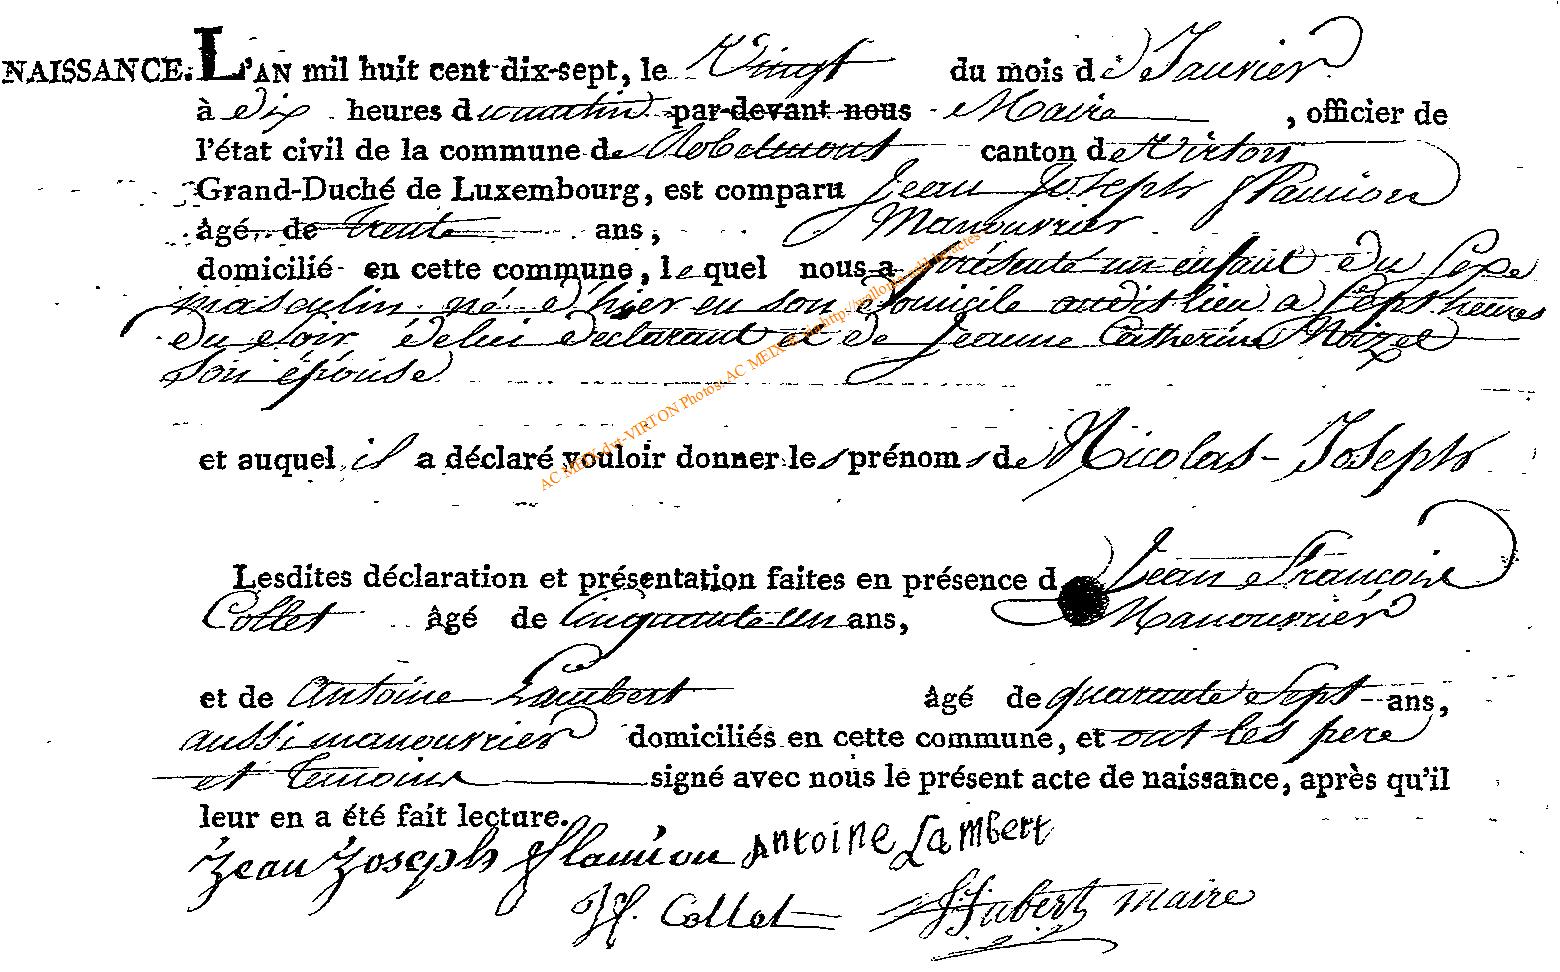 NAISSANCE. L'AN mil huit cent dix-sept, le Vingt du mois de Janvier
à dix heures du matin par-devant nous Maire, officier de
l'état civil de la commune de Robelmont canton de Virton
Grand-Duché de Luxembourg, est comparu Jean Joseph Flamion
âgé de trente ans, Manouvrier
domicilié en cette commune, lequel nous a présenté un enfant du sexe
masculin né d'hier en son domicile audit lieu a sept heures
du soir de lui déclarant et de Jeanne Catherine Noizet
son épouse
et auquel il a déclaré vouloir donner les prénoms de Nicolas-Joseph
Lesdites déclaration et présentation faites en présence d Jean François
Collet âgé de Cinquante-un ans, Manouvrier
et de Antoine Lambert âgé de quarante Sept ans,
aussi manouvrier domiciliés en cette commune, et ont les pere
et temoins signé avec nous le présent acte de naissance, après qu'il
leur en a été fait lecture.
Jean Joseph flamion Antoine Lambert
Jf. Collet Hubert maire
AC MEIX-dvt-VIRTON Photos: AC MEIX